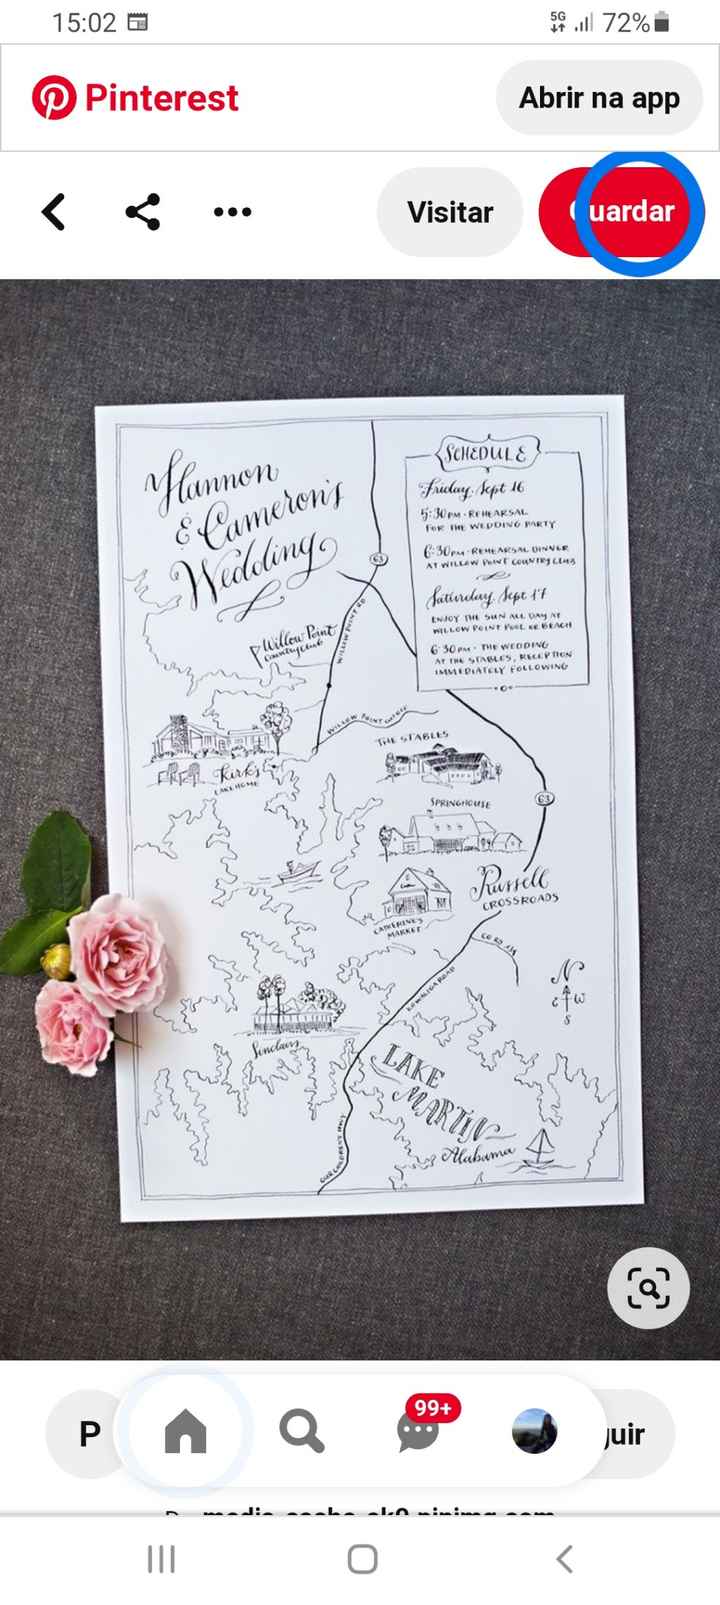 15:02
5G
72%
Pinterest
Abrir na app
Visitar
uardar
Hannon
& Cameron's
Wedding
SCHEDULE
Friday, Sept 16
5:30 PM - REHEARSAL
FOR THE WEDDING PARTY
6:30 PM - REHEARSAL DINNER
AT WILLOW POINT COUNTRY CLUB
Saturday, Sept 17
ENJOY THE SUN ALL DAY AT
WILLOW POINT POOL OR BEACH
6:30 PM - THE WEDDING
AT THE STABLES, RECEPTION
IMMEDIATELY FOLLOWING
63
WILLOW POINT RD
Willow Point
Country Club
WILLOW POINT
THE STABLES
Kirk's
LAKE HOME
SPRINGHOUSE
63
Russell
CROSSROADS
CATHERINE'S
MARKET
KOWALIGA ROAD
N
E W
S
Sinclairs
LAKE
MARTIN
Alabama
OUR CHILDREN'S HWY
P
99+
uir
media-cache-ak0.pinimg.com